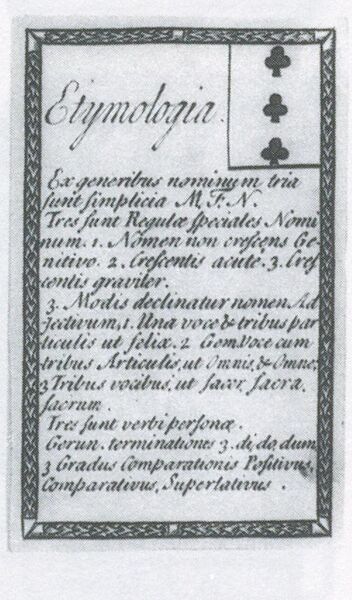 Etymologia.
Ex generibus nominum tria
sunt simplicia M. F. N.
Tres sunt Regulæ speciales Nomi
num. 1. Nomen non crescens Ge-
nitivo. 2. Crescentis acute. 3. Cres
centis graviter.
3. Modis declinatur nomen Ad
jectivum, 1. Una voce & tribus par
ticulis ut felix. 2 Gem Voce cum
tribus Articulis, ut Omnis, & Omne,
3 Tribus vocibus, ut sacer, sacra,
sacrum.
Tres sunt verbi personæ.
Gerun. terminationes 3. di, do, dum,
3 Gradus Comparationis Positivus,
Comparativus, Superlativus.